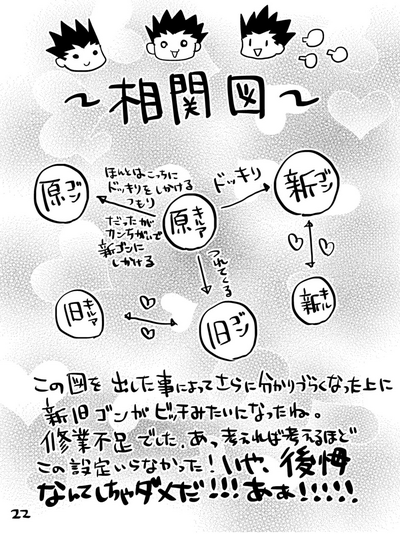 ～相関図～
原ゴン
ほんとはこっちに
ドッキリをしかける
つもり
だったが
カンちがいで
新ゴンに
しかける
原キルア
ドッキリ
新ゴン
つれてくる
旧キルア
旧ゴン
新キル
この図を出した事によってさらに分かりづらくなった上に
新旧ゴンがビッチみたいになったね。
修業不足でした、あっ考えれば考えるほど
この設定いらなかった！いや、後悔
なんてしちゃダメだ!!!ああ!!!!!
22